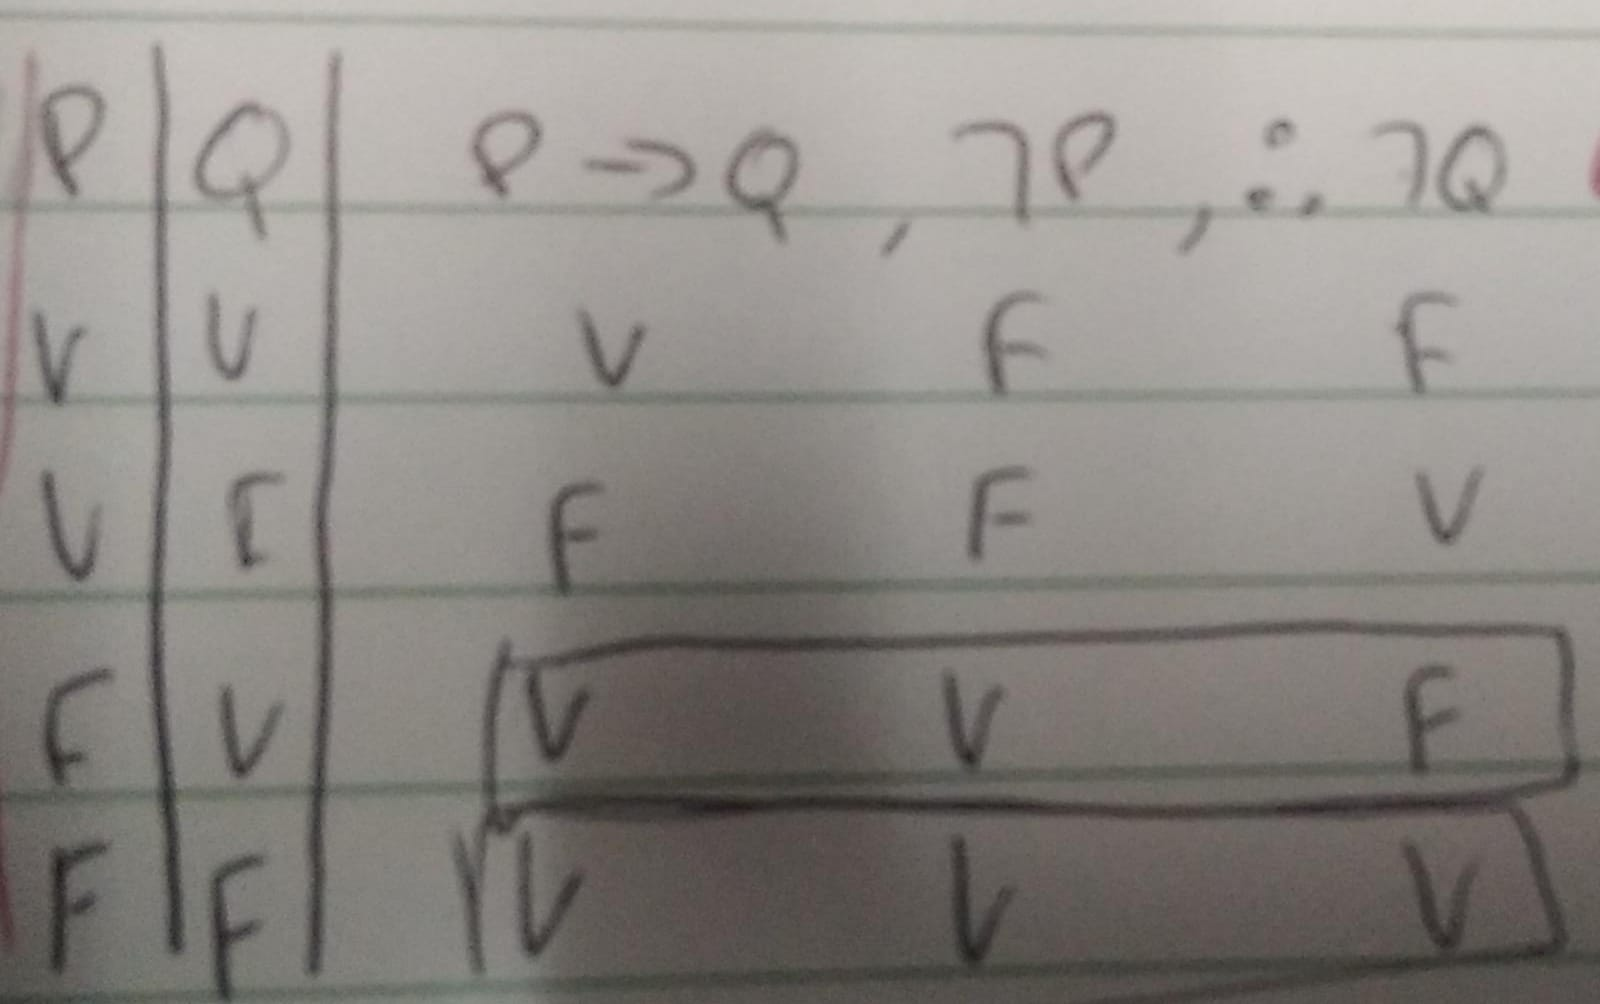 P Q P → Q , ¬P , ∴ ¬Q
V V V F F
V F F F V
F V V V F
F F V V V